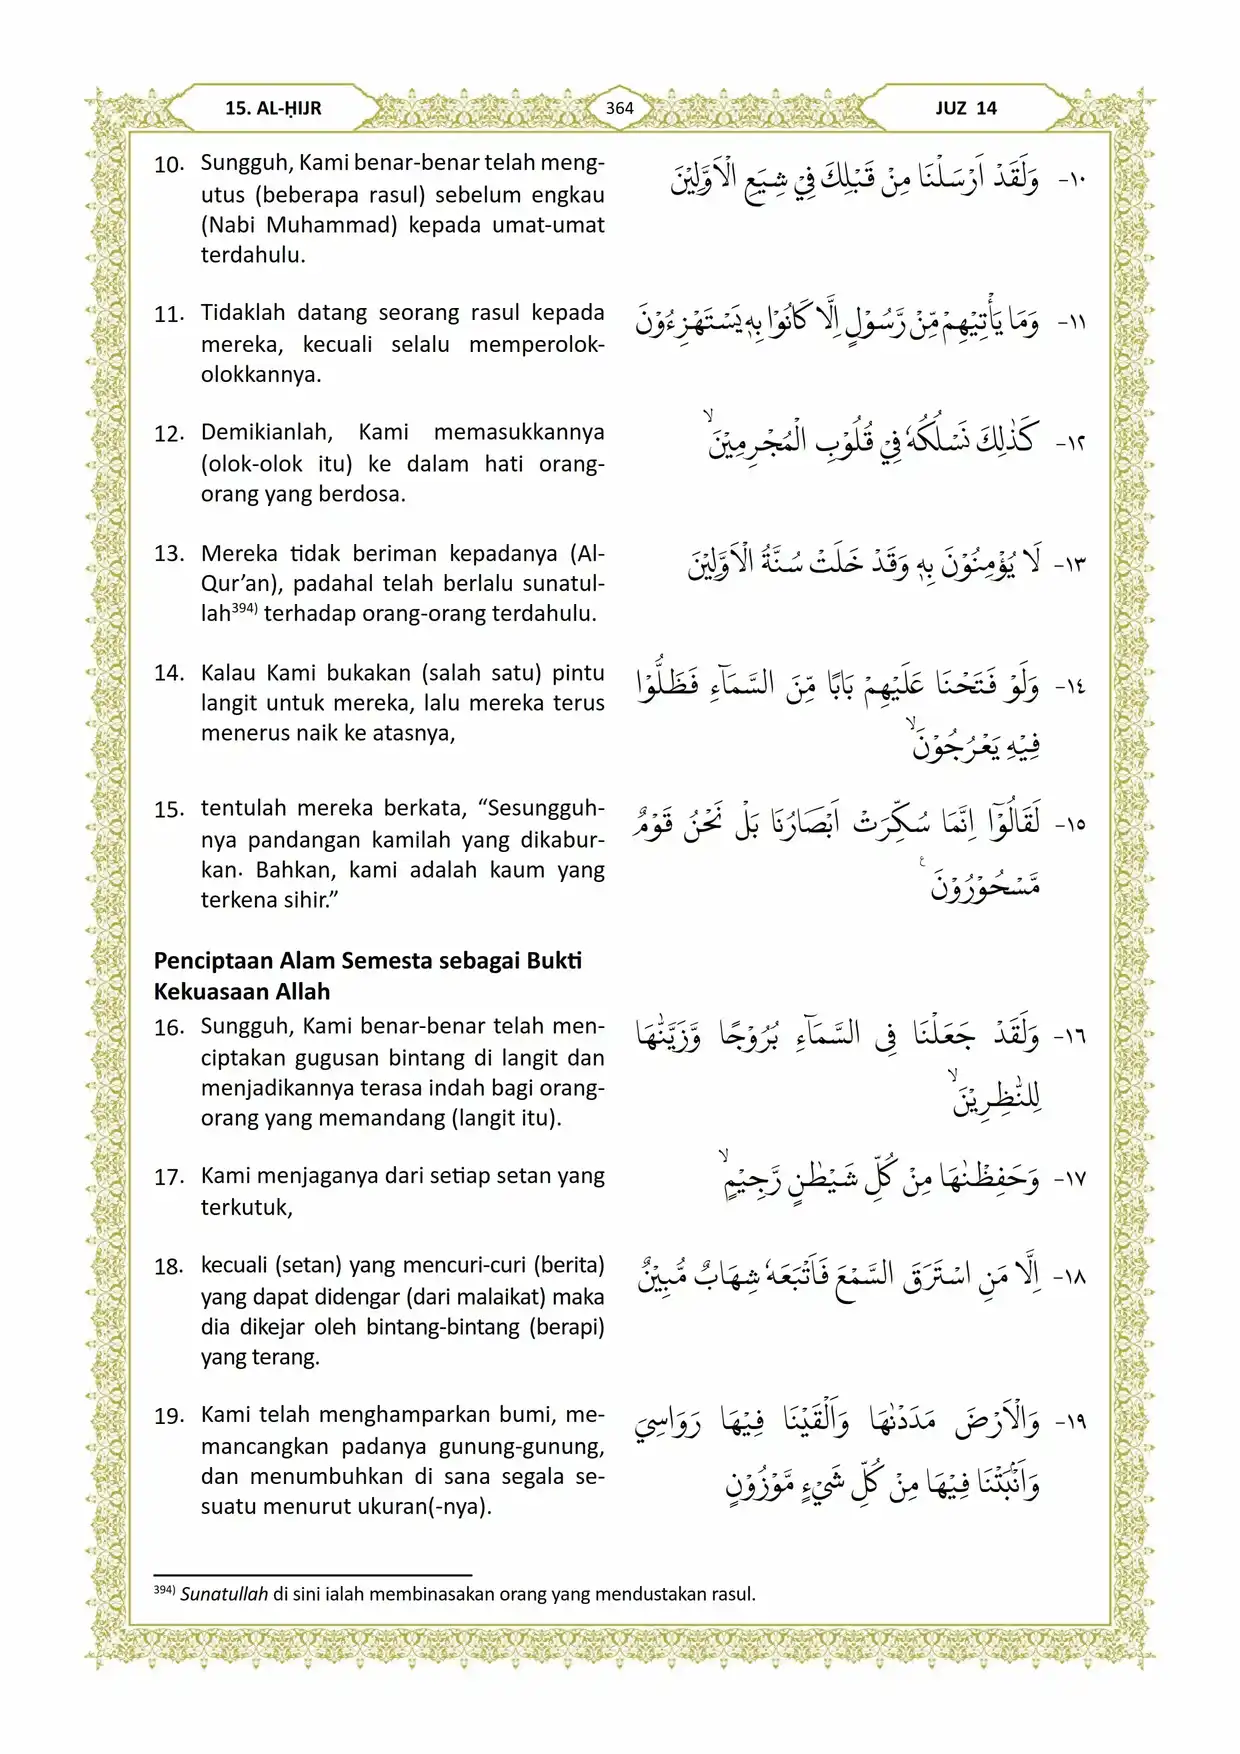 15. AL-ḤIJR
364
JUZ 14
10. Sungguh, Kami benar-benar telah meng-
utus (beberapa rasul) sebelum engkau
(Nabi Muhammad) kepada umat-umat
terdahulu.
١٠- وَلَقَدْ اَرْسَلْنَا مِنْ قَبْلِكَ فِيْ شِيَعِ الْاَوَّلِيْنَ
11. Tidaklah datang seorang rasul kepada
mereka, kecuali selalu memperolok-
olokkannya.
١١- وَمَا يَأْتِيْهِمْ مِّنْ رَّسُوْلٍ اِلَّا كَانُوْا بِهٖ يَسْتَهْزِءُوْنَ
12. Demikianlah, Kami memasukkannya
(olok-olok itu) ke dalam hati orang-
orang yang berdosa.
١٢- كَذٰلِكَ نَسْلُكُهٗ فِيْ قُلُوْبِ الْمُجْرِمِيْنَۙ
13. Mereka tidak beriman kepadanya (Al-
Qur’an), padahal telah berlalu sunatul-
lah³⁹⁴⁾ terhadap orang-orang terdahulu.
١٣- لَا يُؤْمِنُوْنَ بِهٖ وَقَدْ خَلَتْ سُنَّةُ الْاَوَّلِيْنَ
14. Kalau Kami bukakan (salah satu) pintu
langit untuk mereka, lalu mereka terus
menerus naik ke atasnya,
١٤- وَلَوْ فَتَحْنَا عَلَيْهِمْ بَابًا مِّنَ السَّمَاۤءِ فَظَلُّوْا
فِيْهِ يَعْرُجُوْنَۙ
15. tentulah mereka berkata, “Sesungguh-
nya pandangan kamilah yang dikabur-
kan. Bahkan, kami adalah kaum yang
terkena sihir.”
١٥- لَقَالُوْٓا اِنَّمَا سُكِّرَتْ اَبْصَارُنَا بَلْ نَحْنُ قَوْمٌ
مَّسْحُوْرُوْنَ ࣖ
Penciptaan Alam Semesta sebagai Bukti
Kekuasaan Allah
16. Sungguh, Kami benar-benar telah men-
ciptakan gugusan bintang di langit dan
menjadikannya terasa indah bagi orang-
orang yang memandang (langit itu).
١٦- وَلَقَدْ جَعَلْنَا فِى السَّمَاۤءِ بُرُوْجًا وَّزَيَّنّٰهَا
لِلنّٰظِرِيْنَۙ
17. Kami menjaganya dari setiap setan yang
terkutuk,
١٧- وَحَفِظْنٰهَا مِنْ كُلِّ شَيْطٰنٍ رَّجِيْمٍۙ
18. kecuali (setan) yang mencuri-curi (berita)
yang dapat didengar (dari malaikat) maka
dia dikejar oleh bintang-bintang (berapi)
yang terang.
١٨- اِلَّا مَنِ اسْتَرَقَ السَّمْعَ فَاَتْبَعَهٗ شِهَابٌ مُّبِيْنٌ
19. Kami telah menghamparkan bumi, me-
mancangkan padanya gunung-gunung,
dan menumbuhkan di sana segala se-
suatu menurut ukuran(-nya).
١٩- وَالْاَرْضَ مَدَدْنٰهَا وَاَلْقَيْنَا فِيْهَا رَوَاسِيَ
وَاَنْۢبَتْنَا فِيْهَا مِنْ كُلِّ شَيْءٍ مَّوْزُوْنٍ
³⁹⁴⁾ Sunatullah di sini ialah membinasakan orang yang mendustakan rasul.